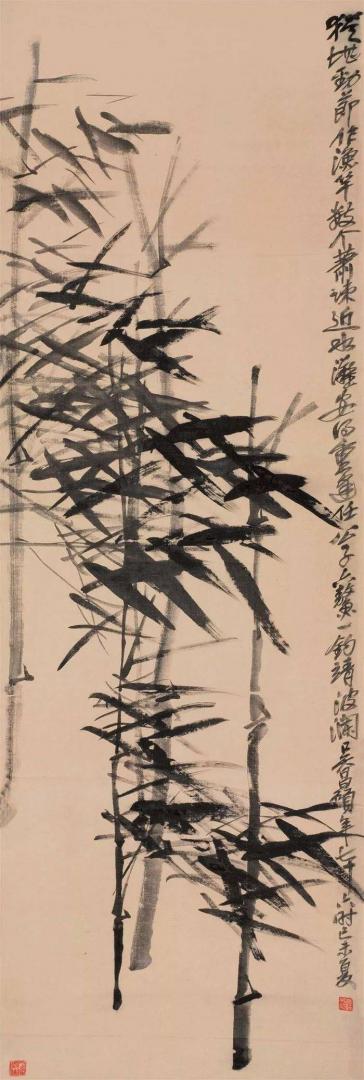 拔地動節作漁竿數个蕭疎近水灘安得重逢任公子六鰲一釣靖波瀾吳昌碩年七十六時己未夏